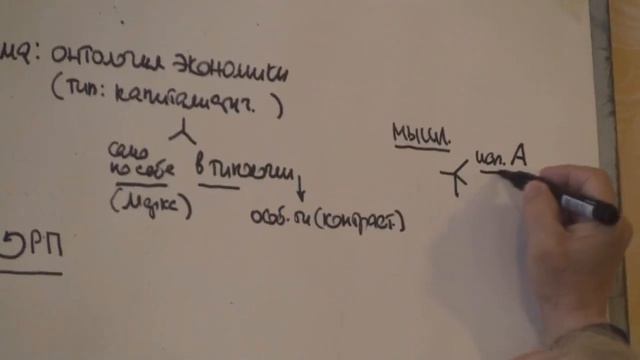 ма: онтология экономики
(тип: капиталистич.)
само по себе
в типологии
(Маркс)
особ-ти (контраст.)
мышл.
исп. А
РП